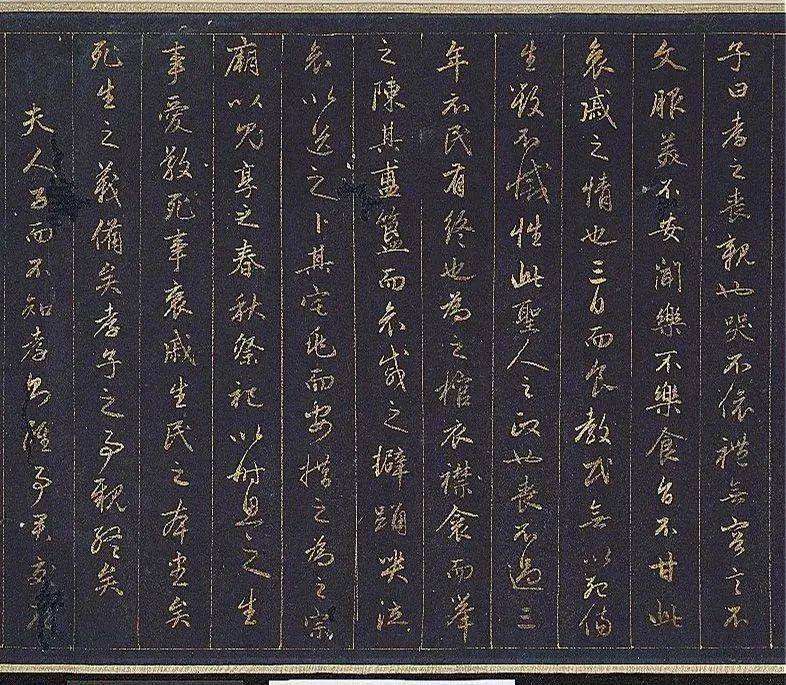 子曰孝之喪親也哭不依禮無容言不
文服美不安聞樂不樂食旨不甘此
哀戚之情也三日而食教民無以死傷
生毀不滅性此聖人之政也喪不過三
年示民有終也為之棺衣襟衾而舉
之陳其簠簋而哀慼之擗踊哭泣
哀以送之卜其宅兆而安措之為之宗
廟以鬼享之春秋祭祀以時思之生
事愛敬死事哀戚生民之本盡矣
死生之義備矣孝子之事親終矣
夫人子而不知孝